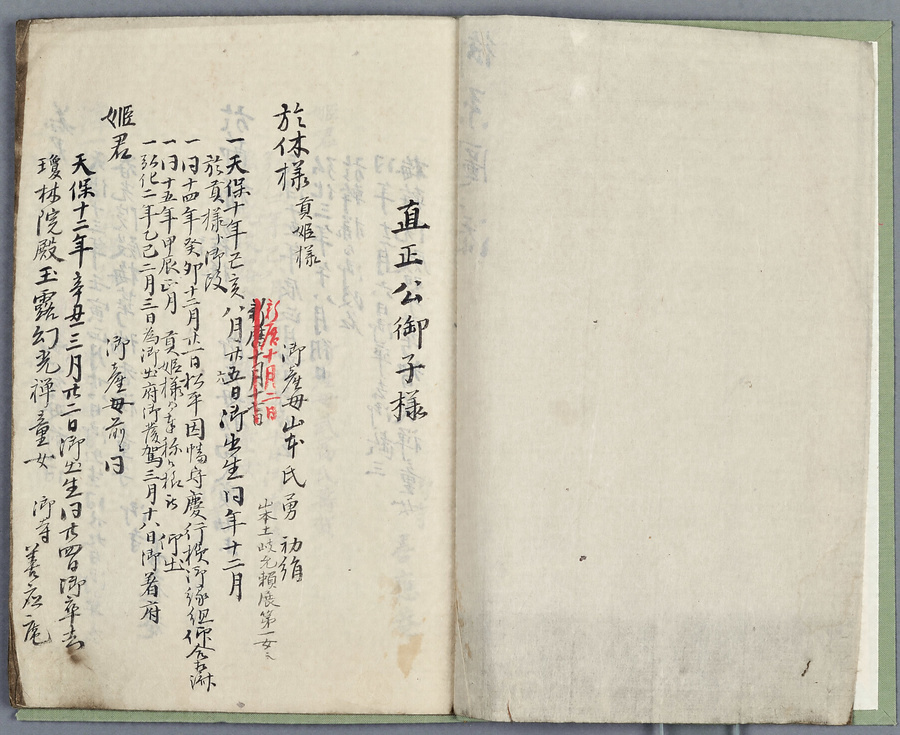 直正公御子様
於休様 貢姫様
御産母山本氏勇 初
山本土岐允頼展第一女
新暦十月二日
一天保十年己亥八月廿五日御出生同年十二月
於貢様御改
一同十四年癸卯十二月廿一日松平因幡守慶行様御縁組仰合相済
一同十五年甲辰正月 貢姫様 奉称候様 仰出
一弘化二年乙巳二月三日為御出府御発駕三月十八日御着府
姫君 御産母前同
天保十二年辛丑三月廿二日御出生同廿四日御卒去
瓊林院殿玉露幻光禅童女 御寺善応庵